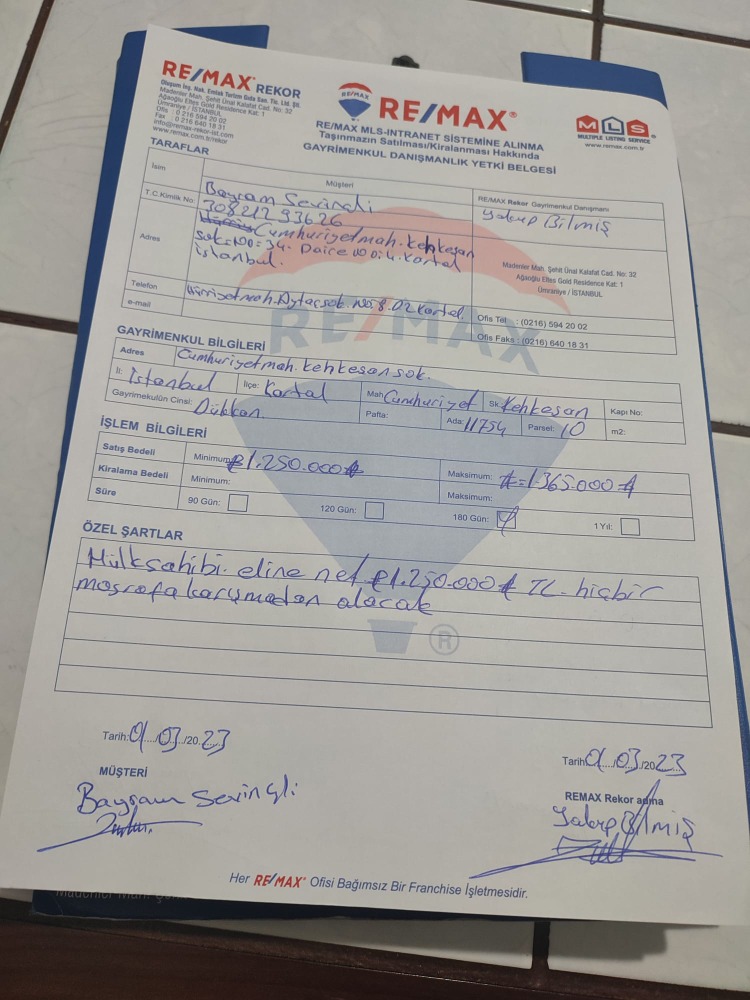 RE/MAX REKOR
Oluşum İnş. Nak. Emlak Turizm Gıda San. Tic. Ltd. Şti.
Madenler Mah. Şehit Ünal Kalafat Cad. No: 32
Ağaoğlu Eltes Gold Residence Kat: 1
Ümraniye / İSTANBUL
Ofis : 0 216 594 20 02
Fax : 0 216 640 18 31
info@remax-rekor-ist.com
www.remax.com.tr/rekor
RE/MAX
RE/MAX®
RE/MAX MLS-INTRANET SİSTEMİNE ALINMA
Taşınmazın Satılması/Kiralanması Hakkında
GAYRİMENKUL DANIŞMANLIK YETKİ BELGESİ
MLS®
MULTIPLE LISTING SERVICE
www.remax.com.tr
TARAFLAR
Müşteri
RE/MAX Rekor Gayrimenkul Danışmanı
İsim Bayram Sevinçli Yakup Bilmiş
T.C.Kimlik No: 30821293626
Adres Cumhuriyet mah. Kehkeşan
sok. no=34. Daire no:4. Kartal
İstanbul.
Madenler Mah. Şehit Ünal Kalafat Cad. No: 32
Ağaoğlu Eltes Gold Residence Kat: 1
Ümraniye / İSTANBUL
Telefon Hürriyet mah. Aytaç sok. No 8. D2 Kartal.
Ofis Tel : (0216) 594 20 02
e-mail
Ofis Faks : (0216) 640 18 31
RE/MAX
GAYRİMENKUL BİLGİLERİ
Adres Cumhuriyet mah. Kehkeşan sok.
İl: İstanbul İlçe: Kartal Mah: Cumhuriyet Sk. Kehkeşan Kapı No:
Gayrimekulün Cinsi: Dükkan. Pafta: Ada: 11754 Parsel: 10 m2:
İŞLEM BİLGİLERİ
Satış Bedeli Minimum: ₺1.250.000₺ Maksimum: ₺=1.365.000₺
Kiralama Bedeli Minimum: Maksimum:
Süre 90 Gün: 120 Gün: 180 Gün: 1 Yıl:
ÖZEL ŞARTLAR
Mülk sahibi. eline net ₺1.250.000₺ TL. hiçbir
masrafa karışmadan alacak
®
Tarih: 01/03/2023
Tarih: 01/03/2023
MÜŞTERİ
REMAX Rekor adına
Bayram Sevinçli
Yakup Bilmiş
Her RE/MAX® Ofisi Bağımsız Bir Franchise İşletmesidir.